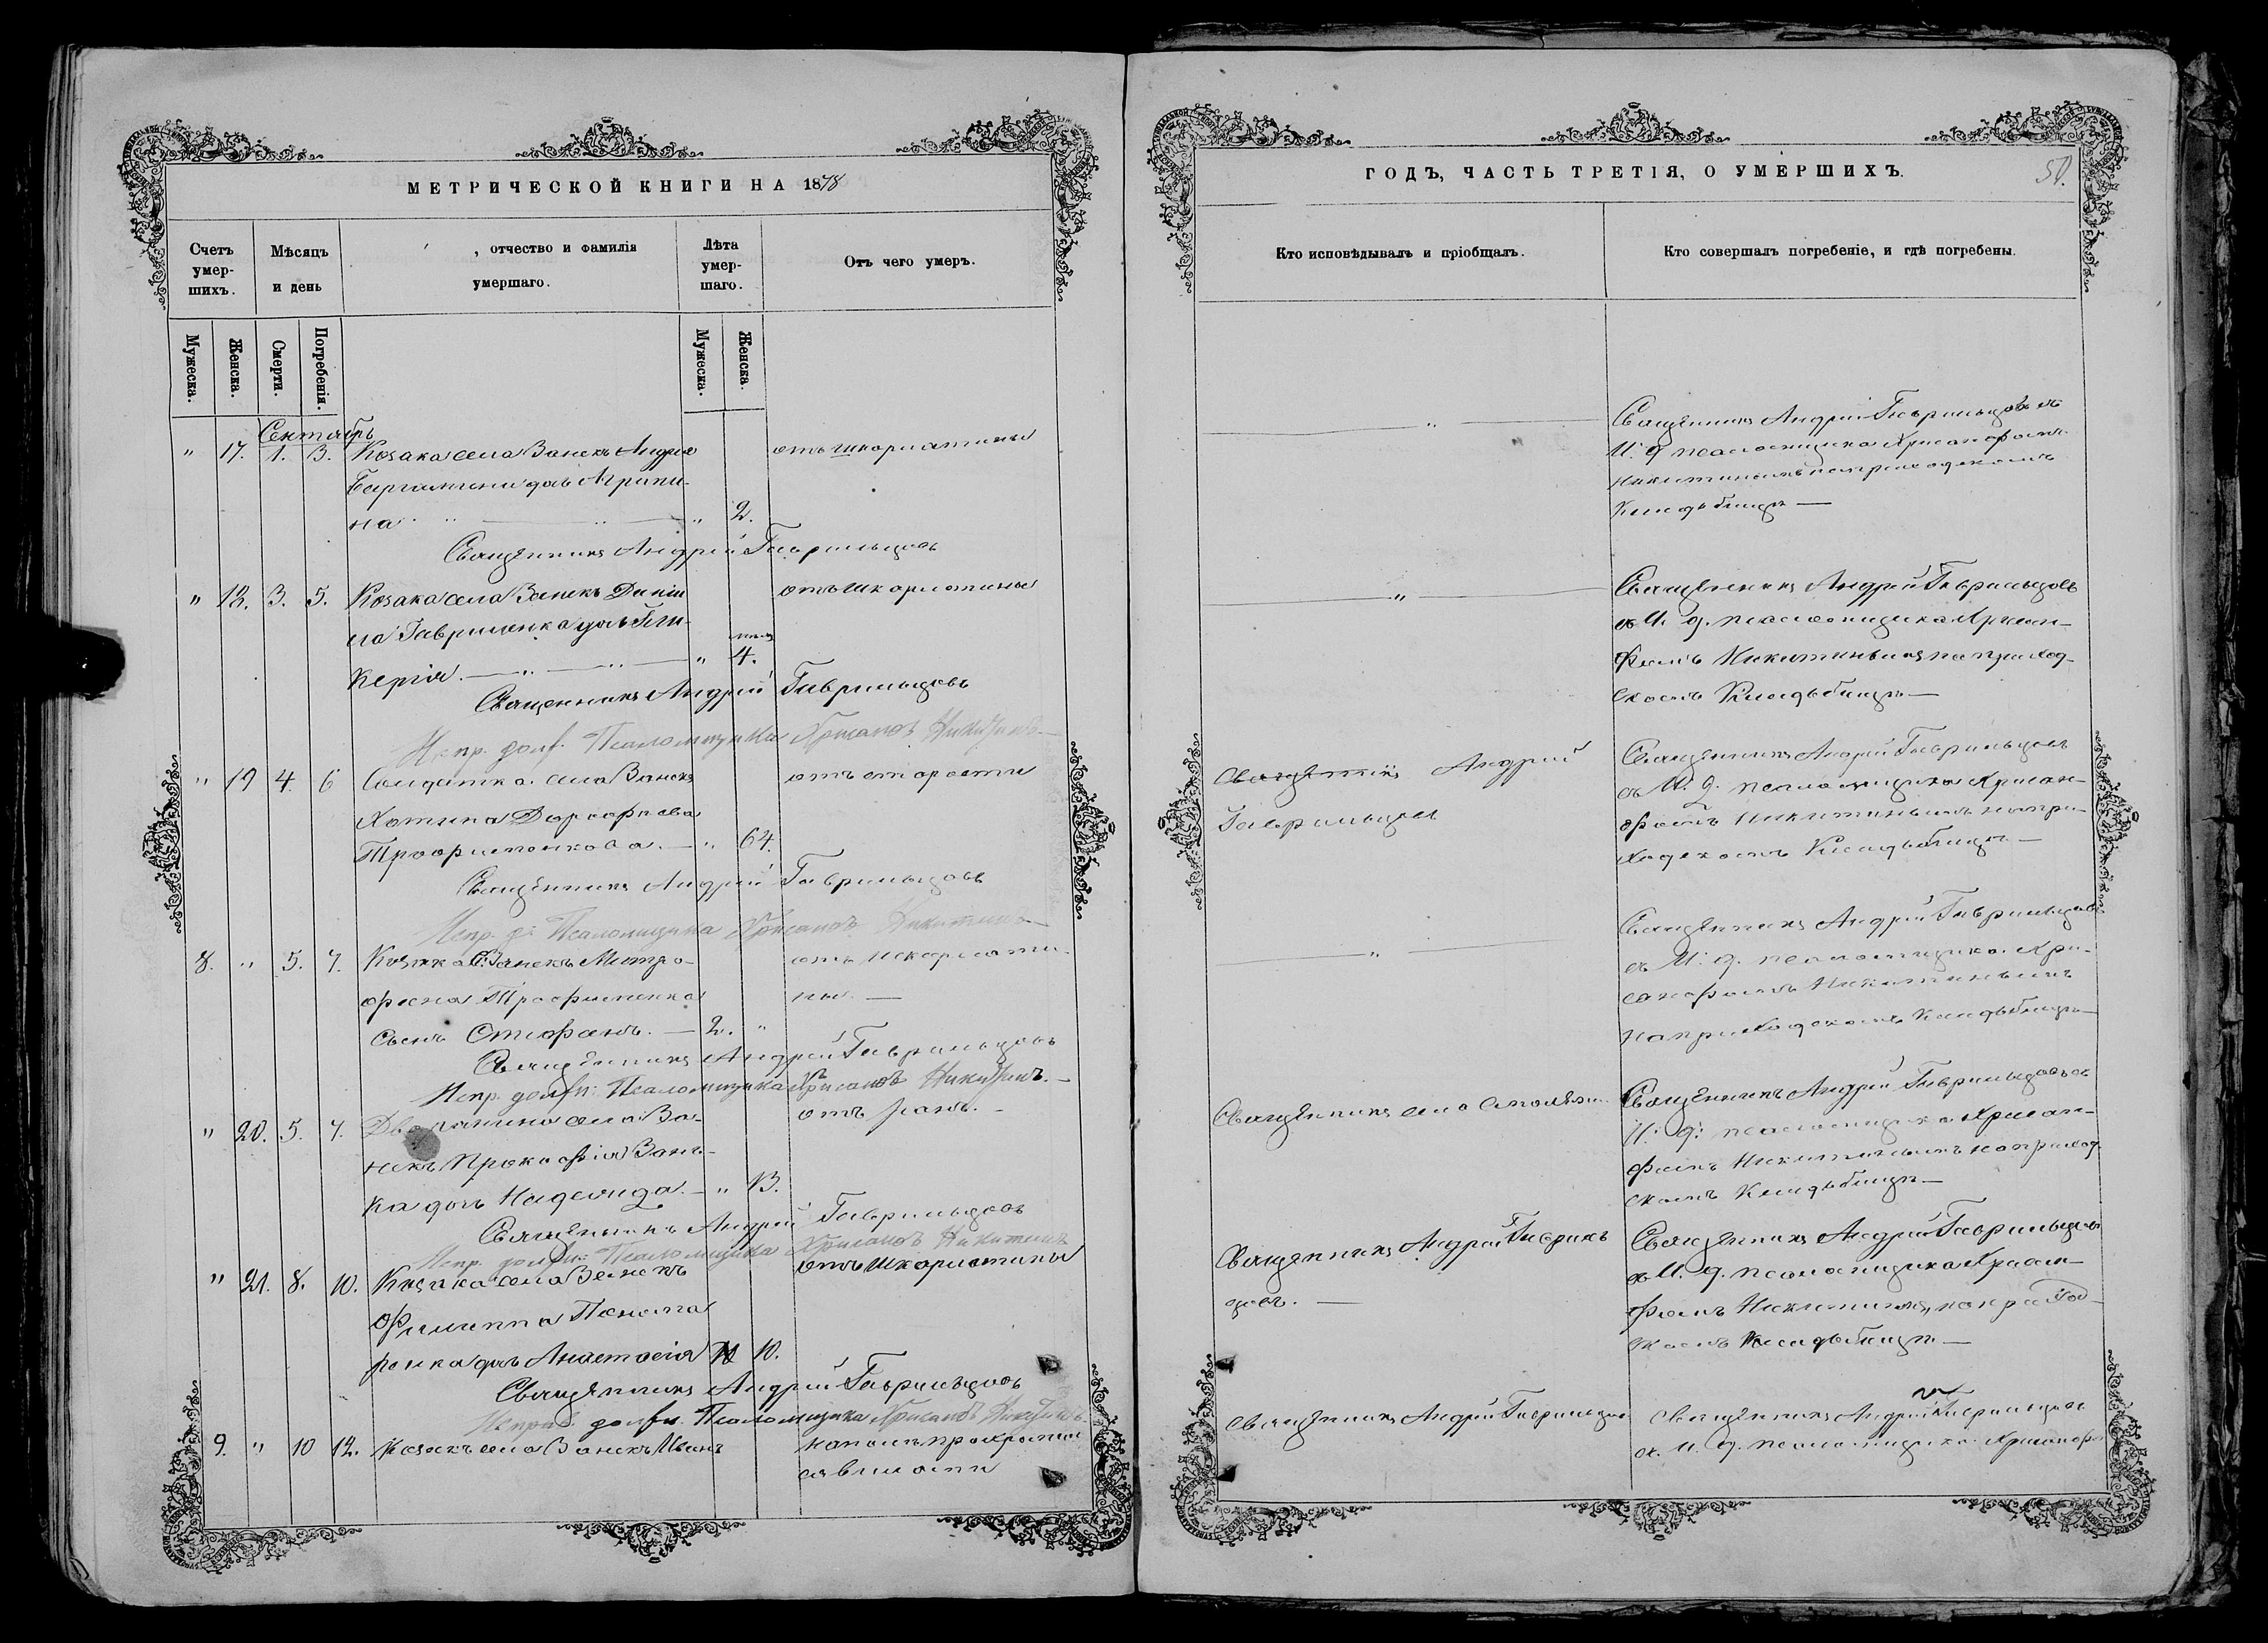 МЕТРИЧЕСКОЙ КНИГИ НА 1878
Счетъ умер- шихъ.
Мѣсяцъ и день
, отчество и фамилія умершаго.
Лѣта умер- шаго.
Отъ чего умеръ.
Мужеска.
Женска.
Смерти.
Погребенія.
Мужеска.
Женска.
Сентябрь
" 17. 1. 3. Козака села Ванекъ Андрея отъ шкарлатины
дочь Агрипи-
на " 2.
Священникъ Андрей Гаврильцовъ
" 18. 3. 5. Козака села Ванекъ Даніи- отъ шкарлатины
ла Гавриленка дочь Гли-
керія. " 4.
Священникъ Андрей Гаврильцовъ
Испр. долж. Псаломщика Хрисанфъ Никитинъ
" 19 4. 6 Солдатка села Ванекъ отъ старости
Дорофеева
Трофименкова. " 64.
Священникъ Андрей Гаврильцовъ
Испр. д. Псаломщика Хрисанфъ Никитинъ
8. " 5. 7. Козака с. Ванекъ Митро- отъ шкарлати-
фана Трофименка ны. —
сынъ Стефанъ. — 2. "
Священникъ Андрей Гаврильцовъ
Испр. должн. Псаломщика Хрисанфъ Никитинъ. —
" 20. 5. 7. Дворянина села Ва- отъ ранъ. —
некъ Прокофія Вань-
ка дочь Надежда. — " 13.
Священникъ Андрей Гаврильцовъ
Испр. должн. Псаломщика Хрисанфъ Никитинъ
" 21. 8. 10. Козака села Ванекъ отъ шкарлатины
Филиппа Понома
ренка дочь Анастасія 10.
Священникъ Андрей Гаврильцовъ
Исправ. должн. Псаломщика Хрисанфъ Никитинъ.
9. " 10 12. Козакъ села Ванекъ Иванъ
ГОДЪ, ЧАСТЬ ТРЕТІЯ, О УМЕРШИХЪ.
50.
Кто исповѣдывалъ и пріобщалъ.
Кто совершалъ погребеніе, и гдѣ погребены.
Священникъ Андрей Гаврильцовъ съ
И. д. псаломщика Хрисанфомъ
Никитинымъ на приходскомъ
Кладбищѣ —
Священникъ Андрей Гаврильцовъ
съ И. д. псаломщика Хрисан-
фомъ Никитинымъ на приход-
скомъ Кладбищѣ —
Священникъ Андрей
Гаврильцовъ
Священникъ Андрей Гаврильцовъ
съ И. д. псаломщика Хрисан-
фомъ Никитинымъ на при-
ходскомъ Кладбищѣ —
Священникъ Андрей Гаврильцовъ
съ И. д. псаломщика Хри-
санфомъ Никитинымъ
на приходскомъ Кладбищѣ —
Священникъ села
Священникъ Андрей Гаврильцовъ съ
И. д. псаломщика Хрисан-
фомъ Никитинымъ на приход
скомъ Кладбищѣ —
Священникъ Андрей Гавриль
цовъ. —
Священникъ Андрей Гаврильцовъ
съ И. д. псаломщика Хрисан-
фомъ Никитинымъ, на приход-
скомъ Кладбищѣ —
Священникъ Андрей Гаврильцовъ
Священникъ Андрей Гаврильцовъ
съ И. д. псаломщика Хрисанф